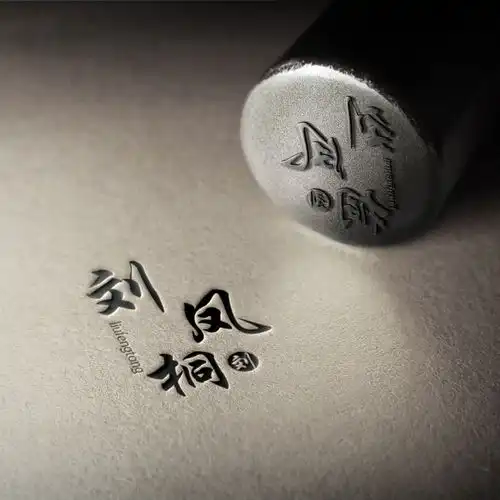 刘
凤
桐
刘
liufengtong